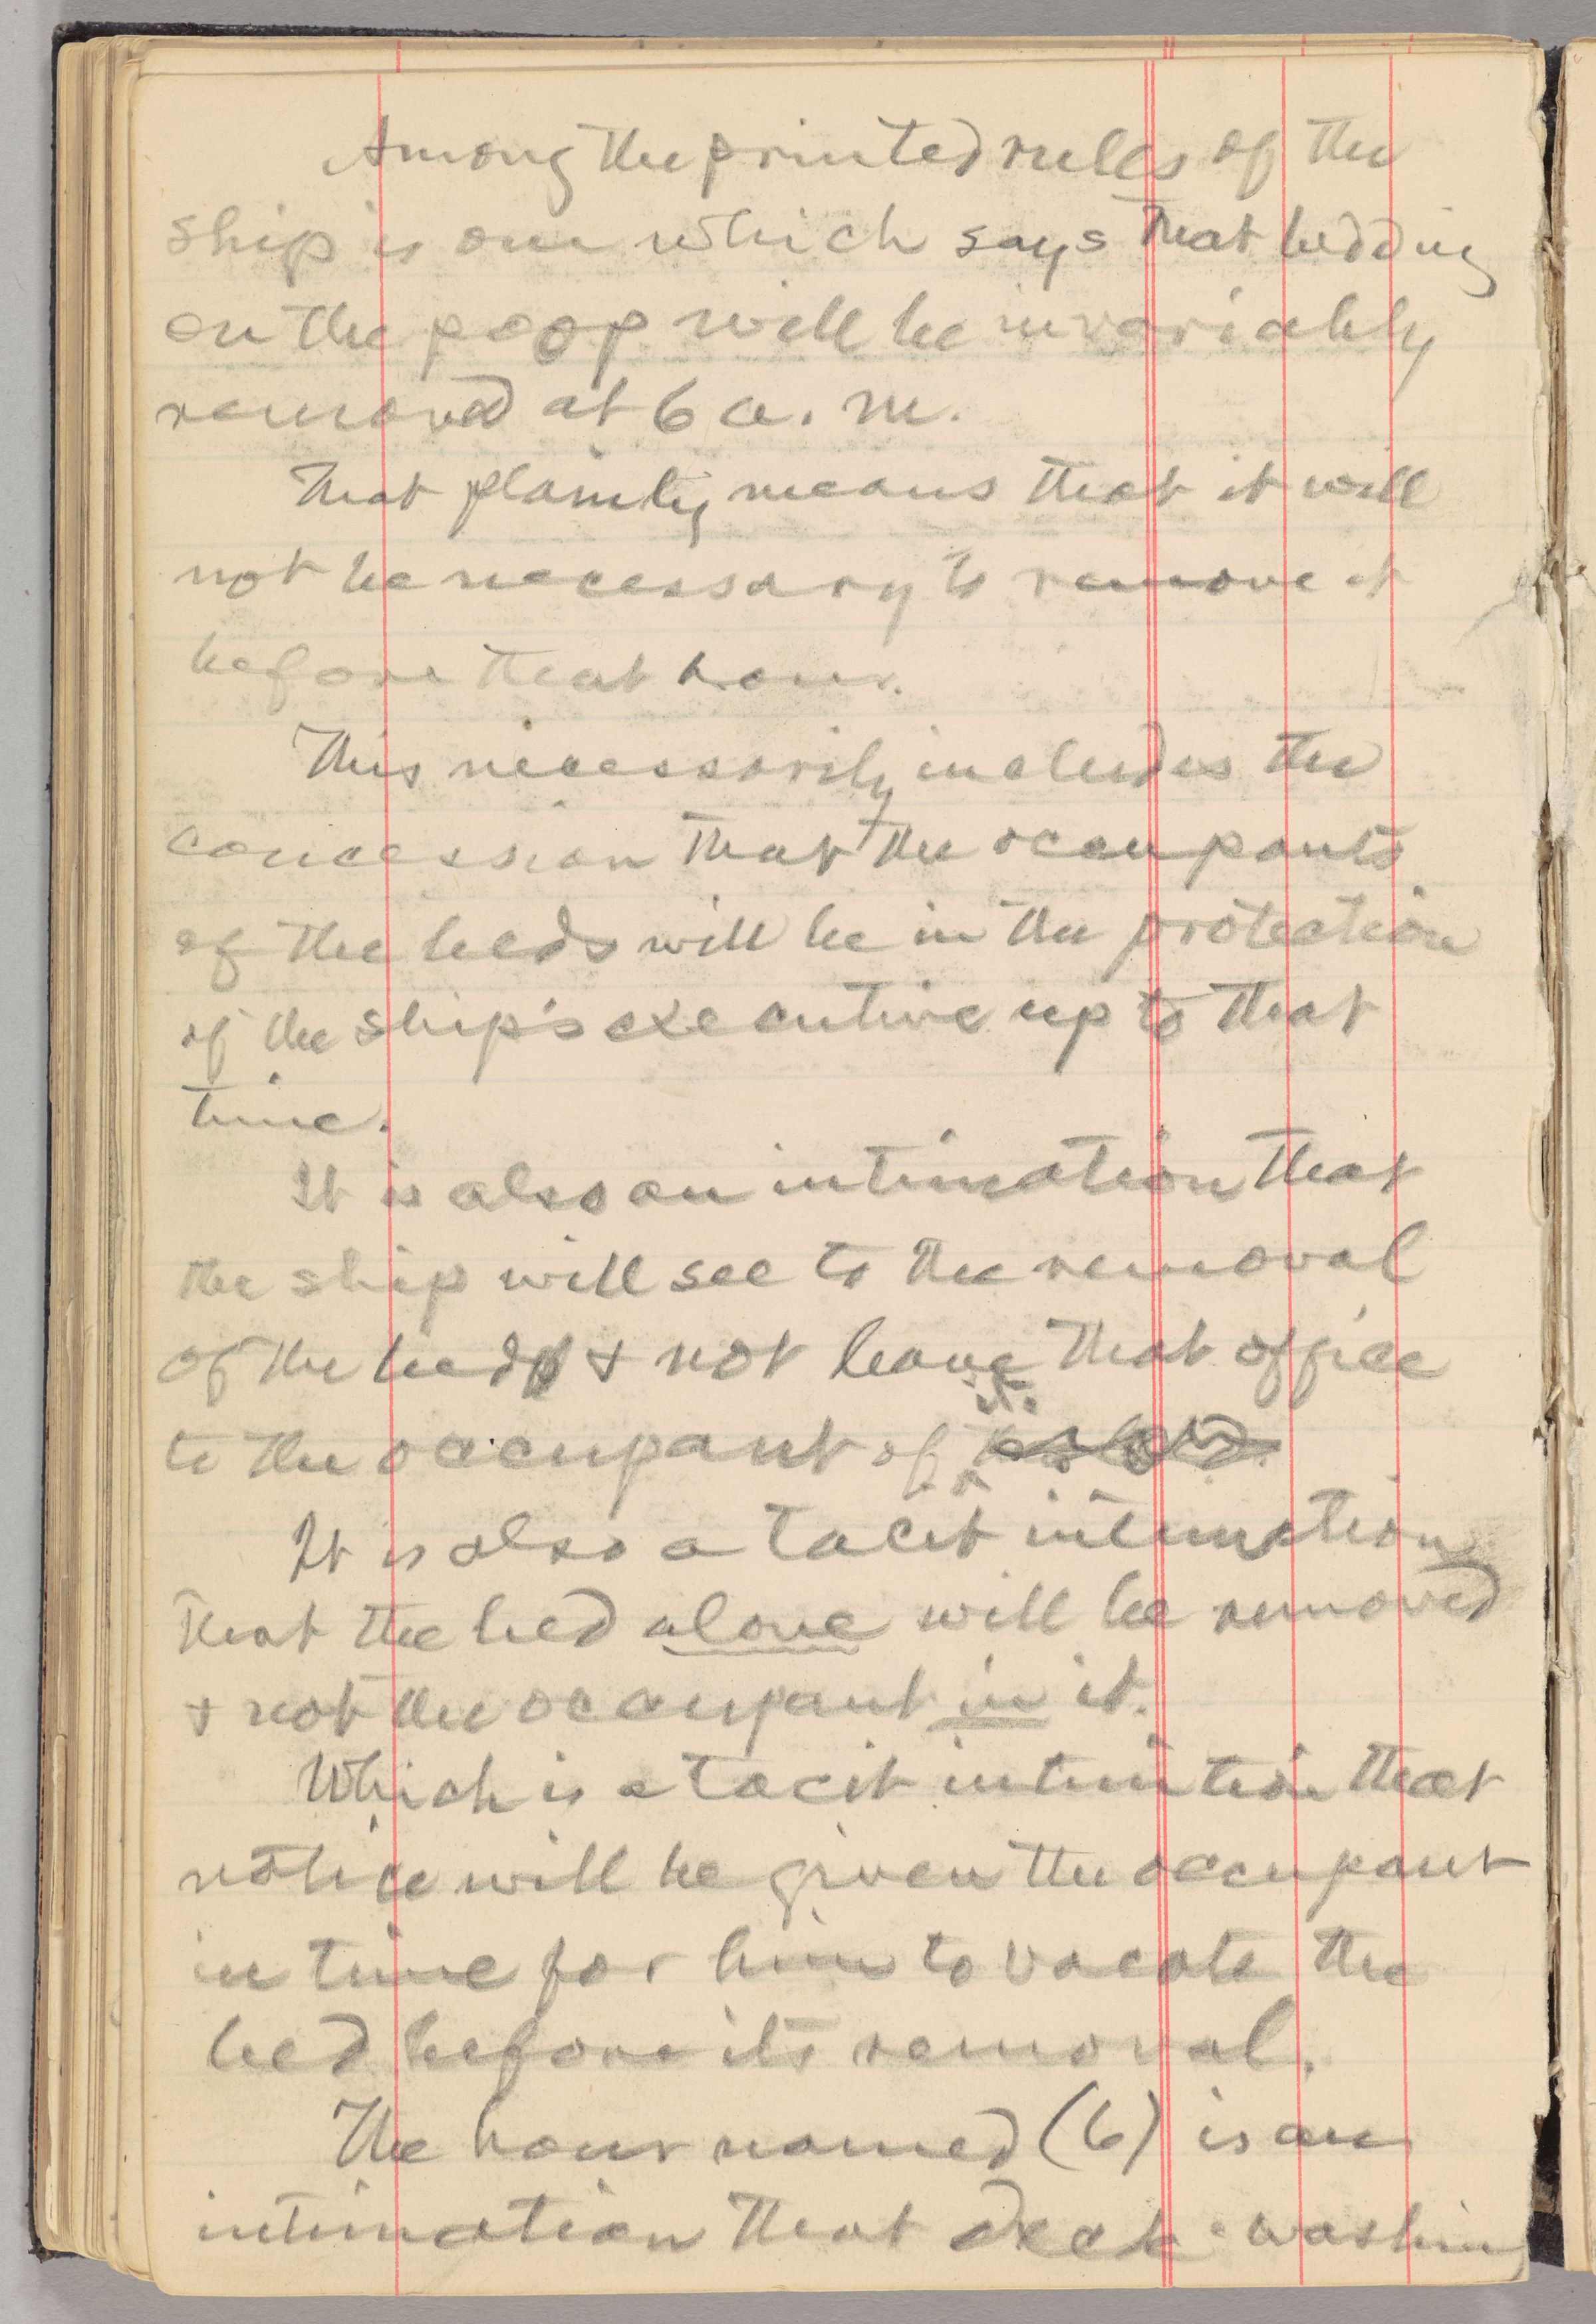 Among the printed rules of the
ship is one which says that bedding
on the poop will be invariably
removed at 6 a. m.
That plainly means that it will
not be necessary to remove it
before that hour.
This necessarily includes the
concession that the occupants
of the beds will be in the protection
of the ship's executive up to that
time.
It is also an intimation that
the ship will see to the removal
of the bed & not leave that office
to the occupant of it.
It is also a tacit intimation
that the bed alone will be removed
& not the occupant in it.
Which is a tacit intimtion that
notice will be given the occupant
in time for him to vacate the
bed before its removal.
The hour named (6) is an
intimation that deck-washing